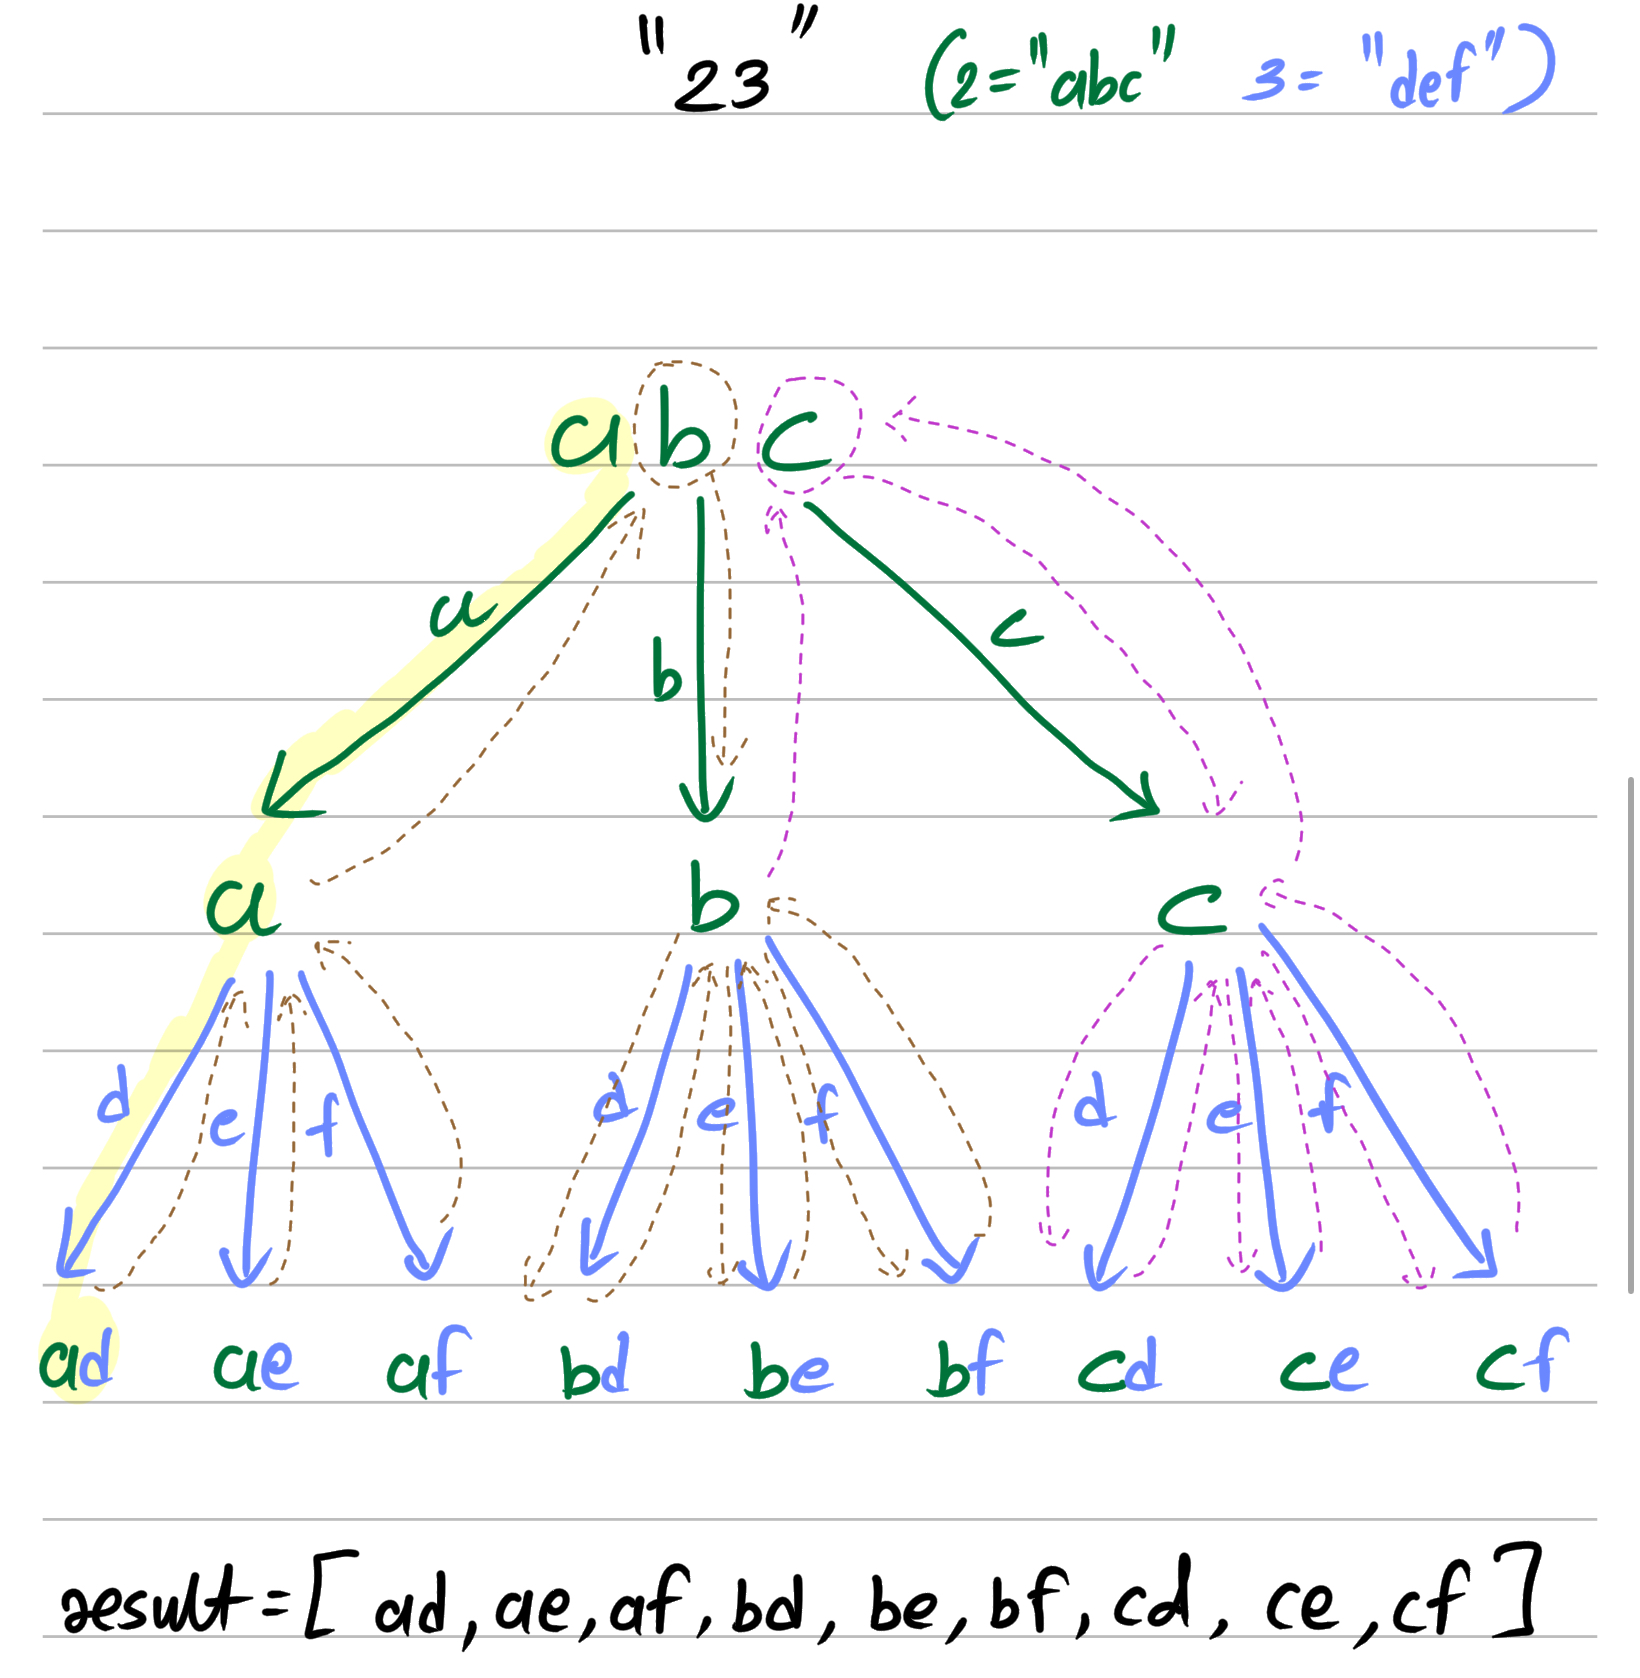 "23" (2="abc" 3= "def")
a b c
a b c
a b c
d e f d e f d e f
ad ae af bd be bf cd ce cf
result=[ad, ae, af, bd, be, bf, cd, ce, cf]